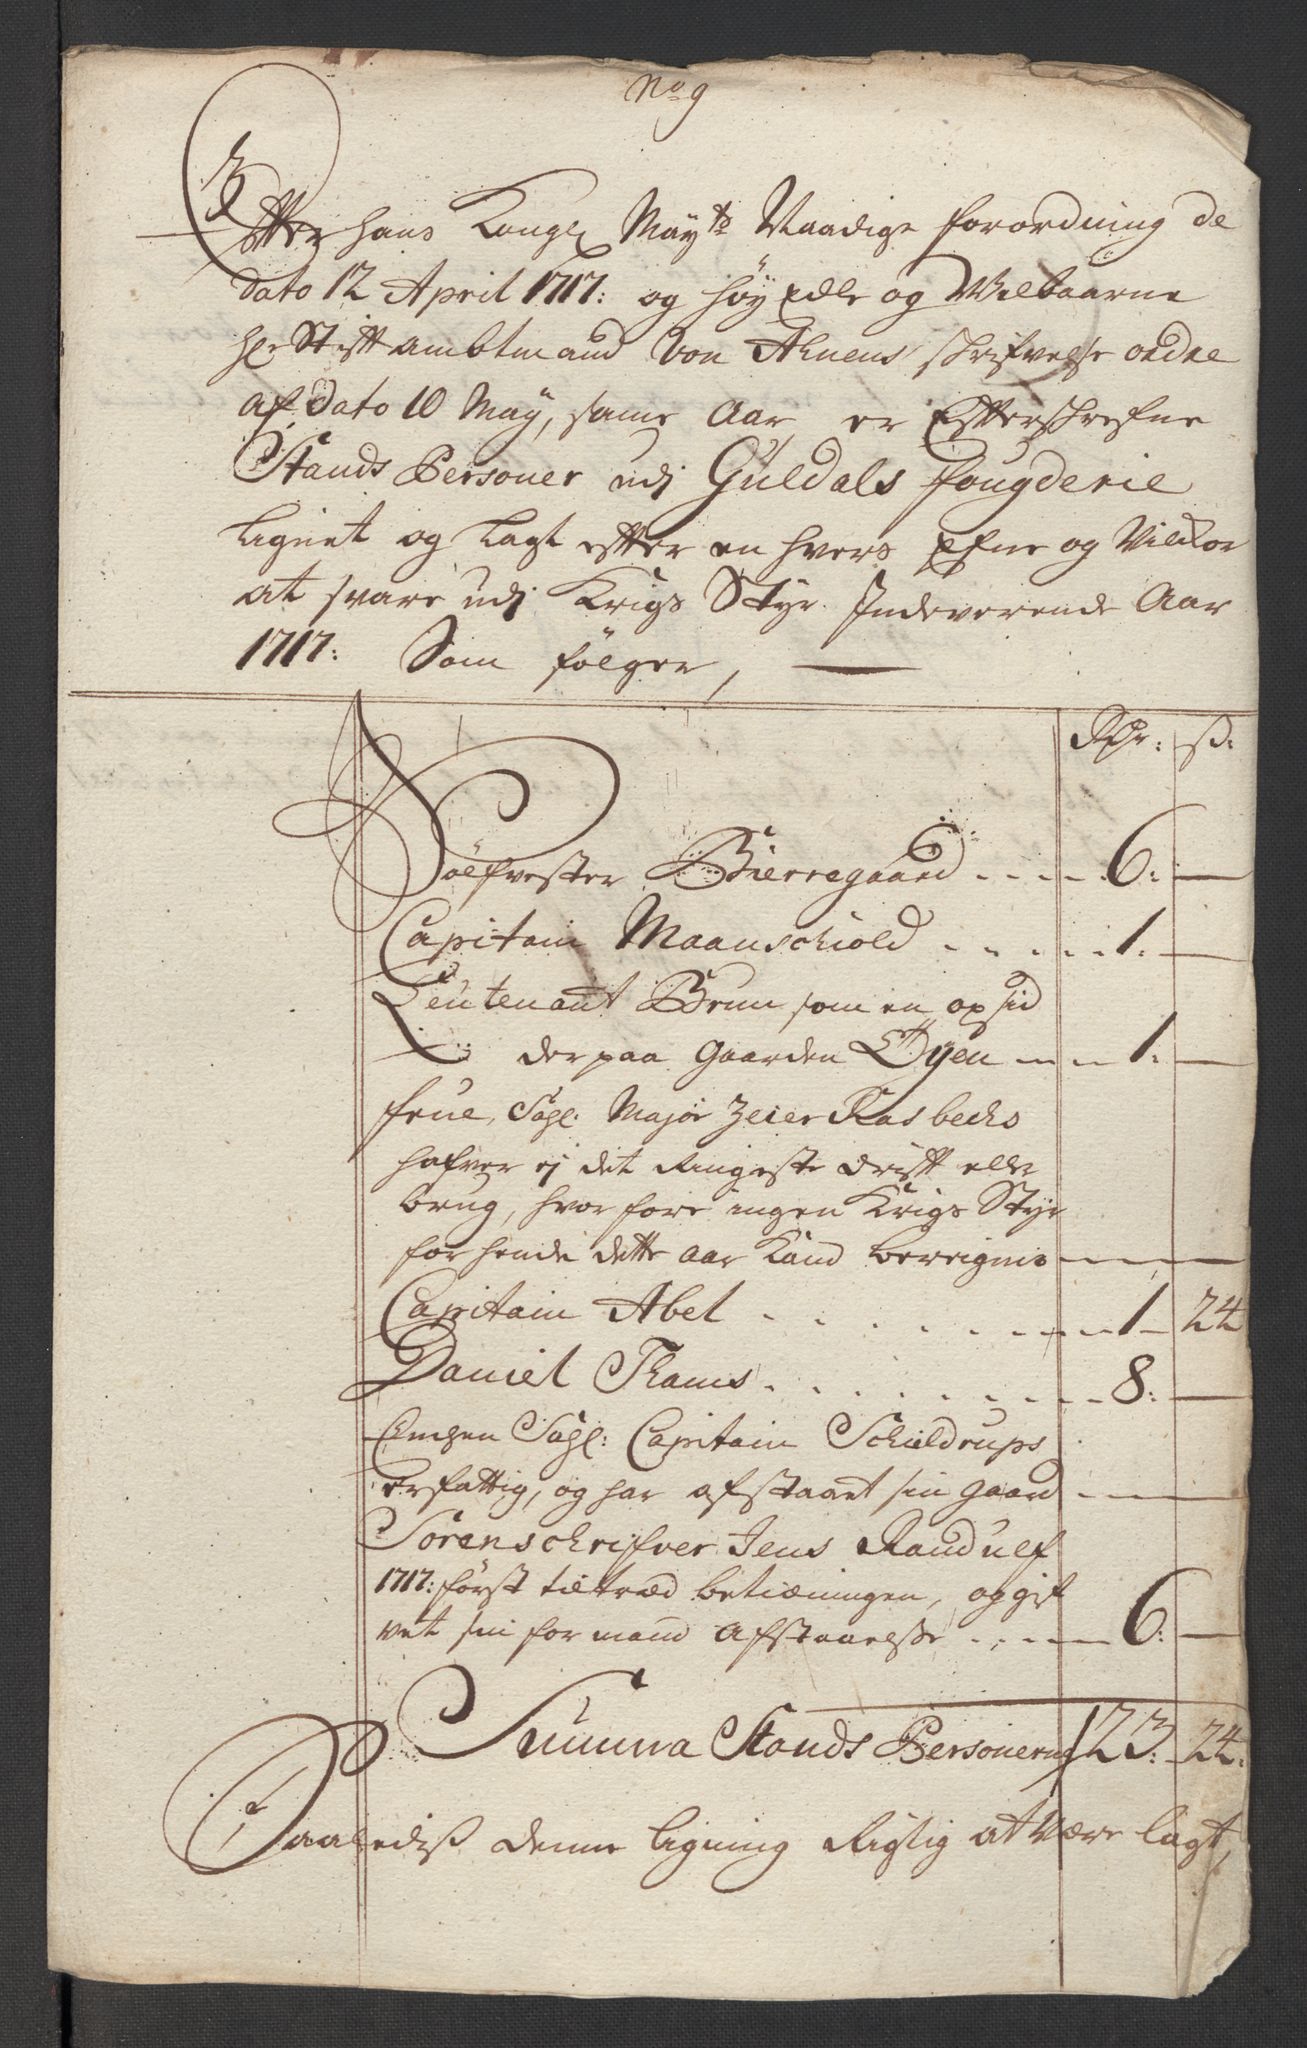 No 9
Efter hans Kongl May:ts Naadige forordning de
dato 12 April 1717: og höy Edle og Welbaarne
Hr Stiftambtmand Von Ahnens schrifvelse ordre
af dato 10 May, same Aar, er Efterschrefne
Stands Personer udj Guldals fougderie
lignet og lagt efter en hvers Efne og Vilckor
at svare udj Krigs Styr Indeverende Aar
1717: Som fölger,
Rdr: ß:
Sölfvester Bierregaard - - - - 6: —
Capitain Maanschiold - - - - 1: —
Leutenant Brun som en opsid
der paa Gaarden Öyen - - - 1: —
frue Sahl. Major Zeier Rasbechs
hafver ej det Ringeste drift eller
brug, hvor fore ingen Krigs Styr
for hende dette aar kand bereignis — —
Capitain Abel - - - - 1 — 24
Daniel Thams - - - - 8: —
Enchen Sahl: Capitain Schieldrups
er fattig, og har afstaaet sin gaard — —
Sorenschrifver Jens Randulf
1717: först tiltræd betieningen, og gif
vet sin formand Afstaaelse - - - - 6: —
Summa Stands Personerne 23: 24:
Saaledis denne ligning Rigtig at være lagt,